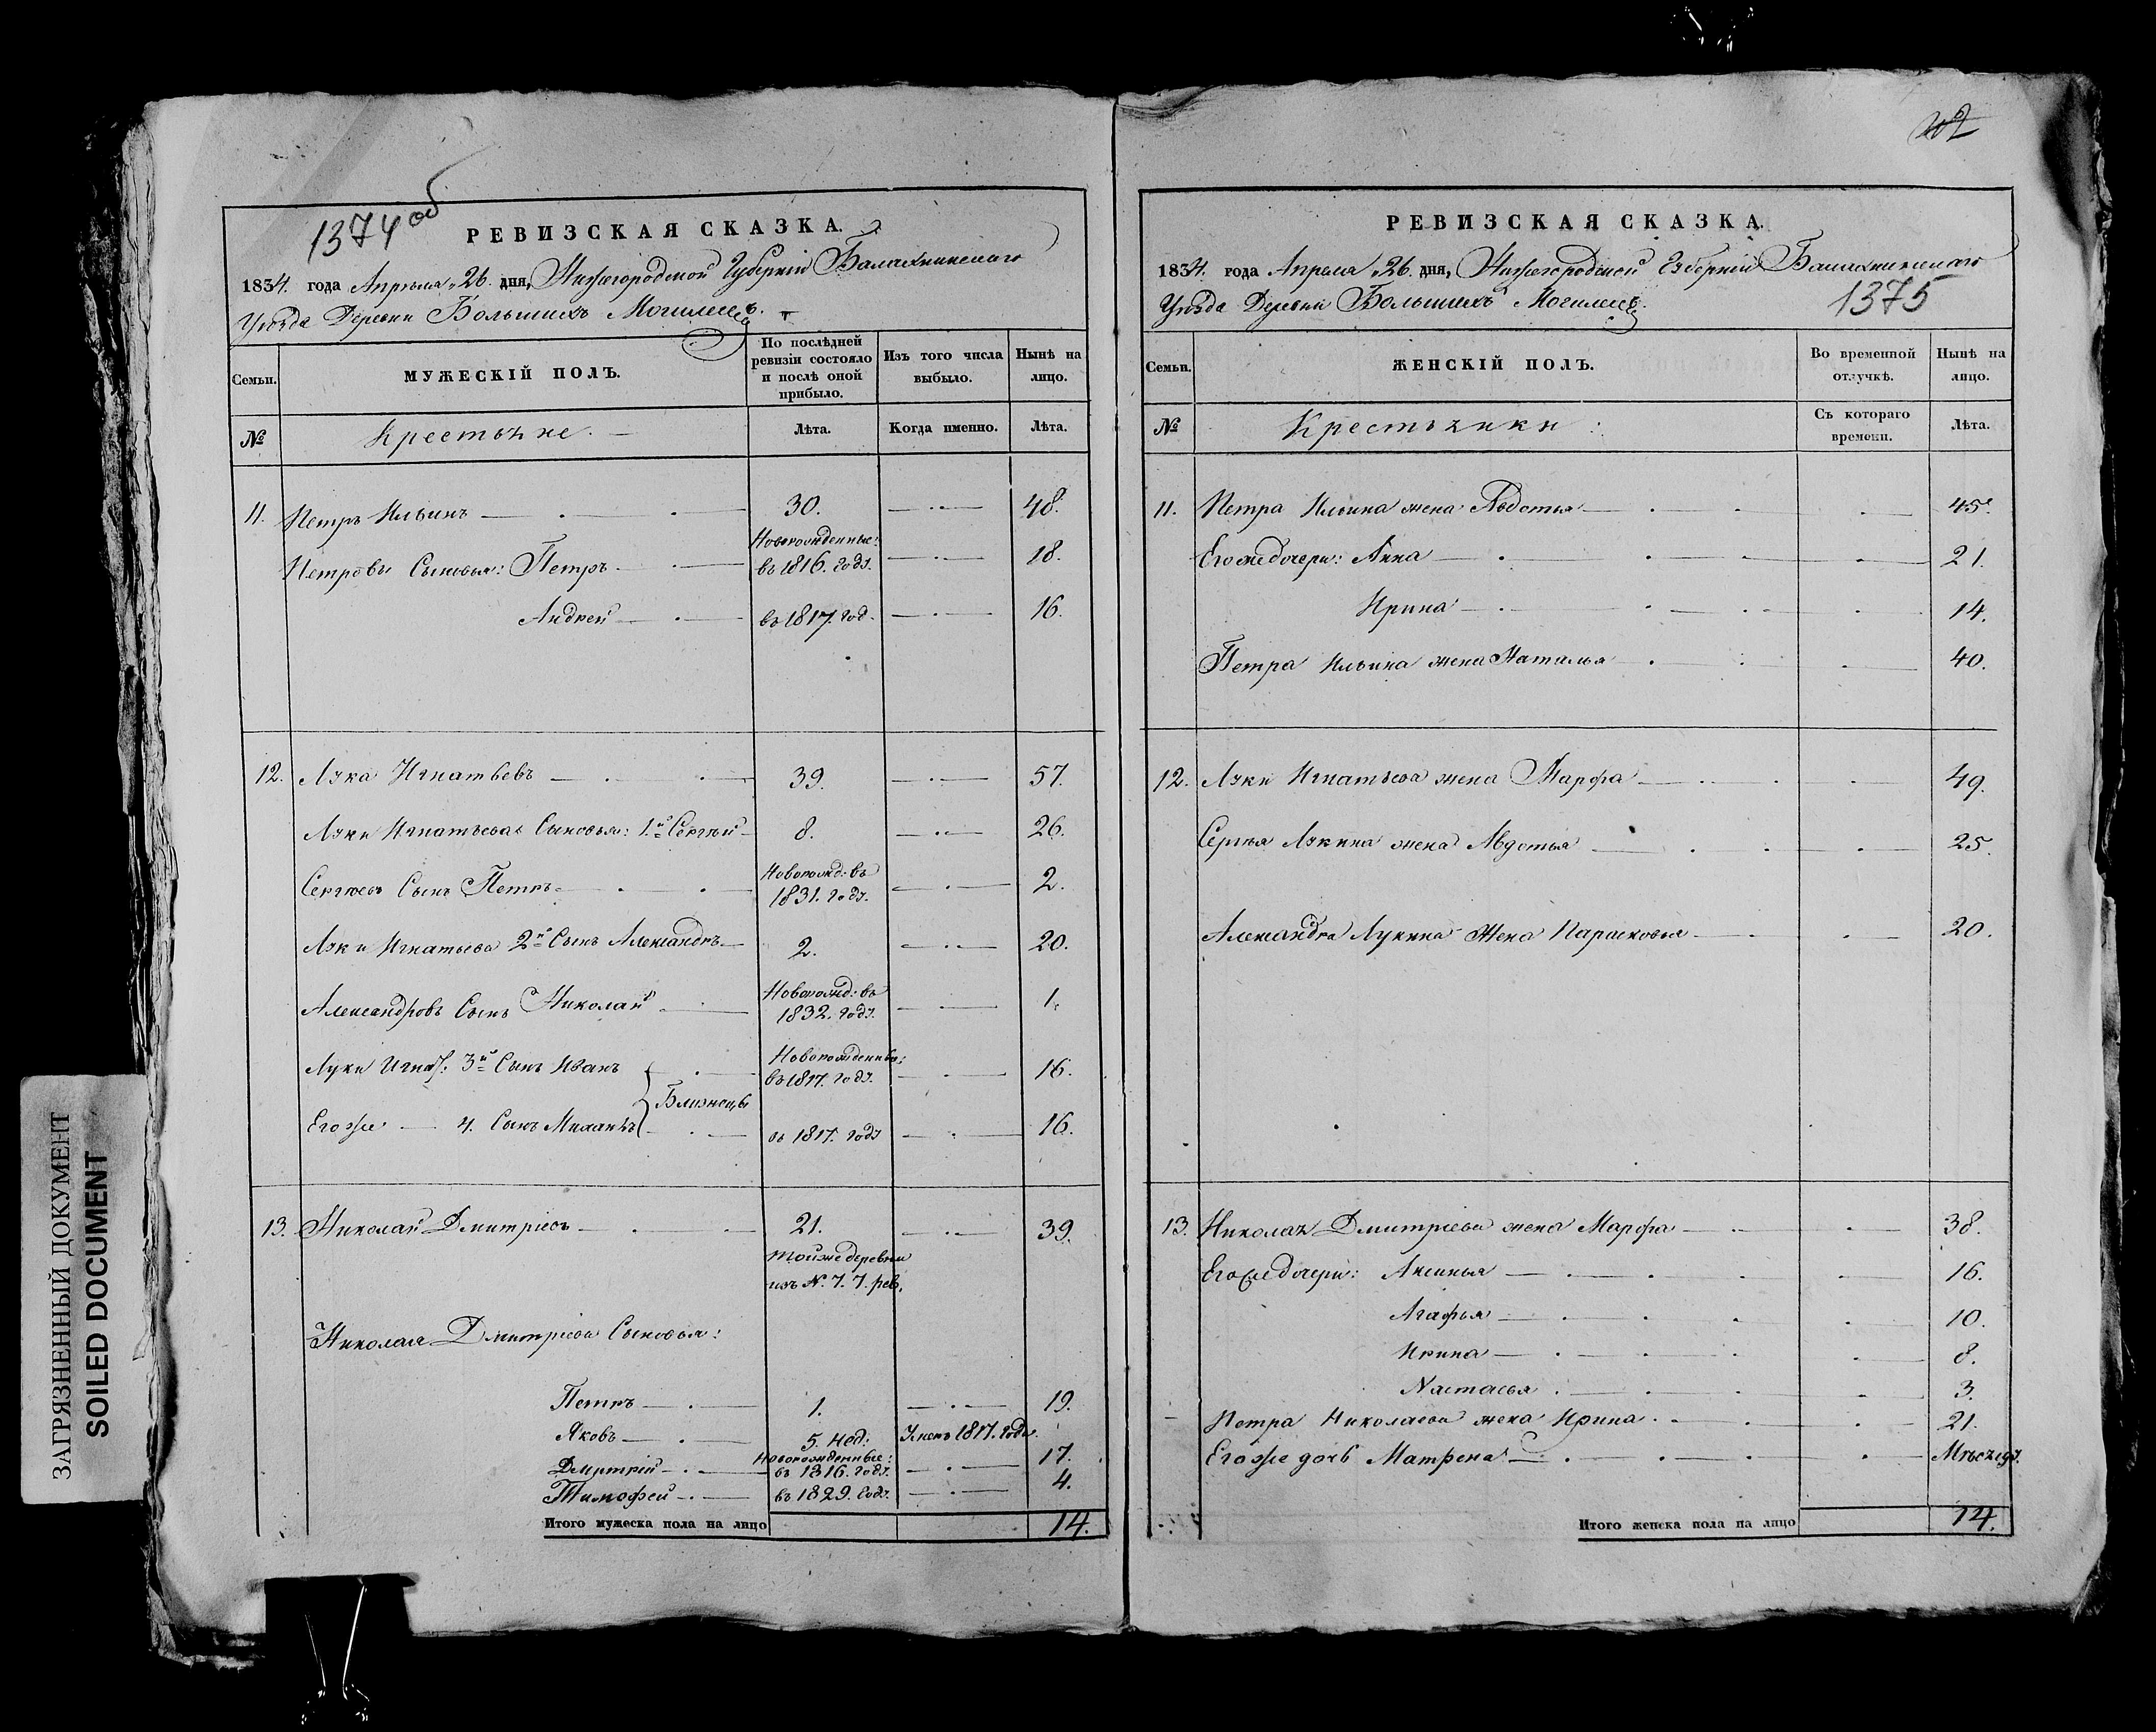 1374 об
РЕВИЗСКАЯ СКАЗКА.
1834. года Апреля 26. дня, Нижегородской Губерніи Балахнинскаго
Уѣзда Деревни Большихъ Могилецъ.
Семьи.
МУЖЕСКІЙ ПОЛЪ.
По послѣдней ревизіи состояло и послѣ оной прибыло.
Изъ того числа выбыло.
Нынѣ на лицо.
№
Крестьяне.
Лѣта.
Когда именно.
Лѣта.
11. Петръ Ильинъ 30. 48.
Новорожденные:
Петровы Сыновья: Петръ въ 1816. году. 18.
Андрей въ 1817. год. 16.
12. Лука Игнатьевъ 39. 57.
Луки Игнатьева Сыновья: 1.й Сергѣй 8. 26.
Сергѣевъ Сынъ Петръ Новорожд: въ 1831. году. 2.
Луки Игнатьева 2й Сынъ Александръ 2. 20.
Александровъ Сынъ Николай Новорожд: въ 1832. году. 1.
Луки Игнат: 3й Сынъ Иванъ Новорожденные: въ 1817. году. 16.
Близнецы
Егоже 4. Сынъ Михаилъ въ 1817. году 16.
13. Николай Дмитріевъ 21. 39.
тойже деревни
изъ N. 7. 7. рев.
Николая Дмитріева Сыновья:
Петръ 1. 19.
Яковъ 5. нед: Умеръ 1817. году.
Новорожденные:
Дмитрій въ 1816. году. 17.
Тимофей въ 1829. году. 4.
Итого мужеска пола на лицо 14.
РЕВИЗСКАЯ СКАЗКА.
1834. года Апреля 26. дня, Нижегородской Губерніи Балахнинскаго
Уѣзда Деревни Большихъ Могилецъ.
1375
Семьи.
ЖЕНСКІЙ ПОЛЪ.
Во временной отлучкѣ.
Нынѣ на лицо.
№
Крестьянки:
Съ котораго времени.
Лѣта.
11. Петра Ильина жена Авдотья 45.
Егоже дочери: Анна 21.
Ирина 14.
Петра Ильина жена Наталья 40.
12. Луки Игнатьева жена Марфа 49.
Сергѣя Лукина жена Авдотья 25.
Александра Лукина жена Парасковья 20.
13. Николая Дмитріева жена Марфа 38.
Егоже дочери: Аксинья 16.
Агафья 10.
Ирина 8.
Настасья 3.
Петра Николаева жена Ирина 21.
Егоже дочь Матрена Мѣсяцъ.
Итого женска пола на лицо 14.
ЗАГРЯЗНЕННЫЙ ДОКУМЕНТ
SOILED DOCUMENT